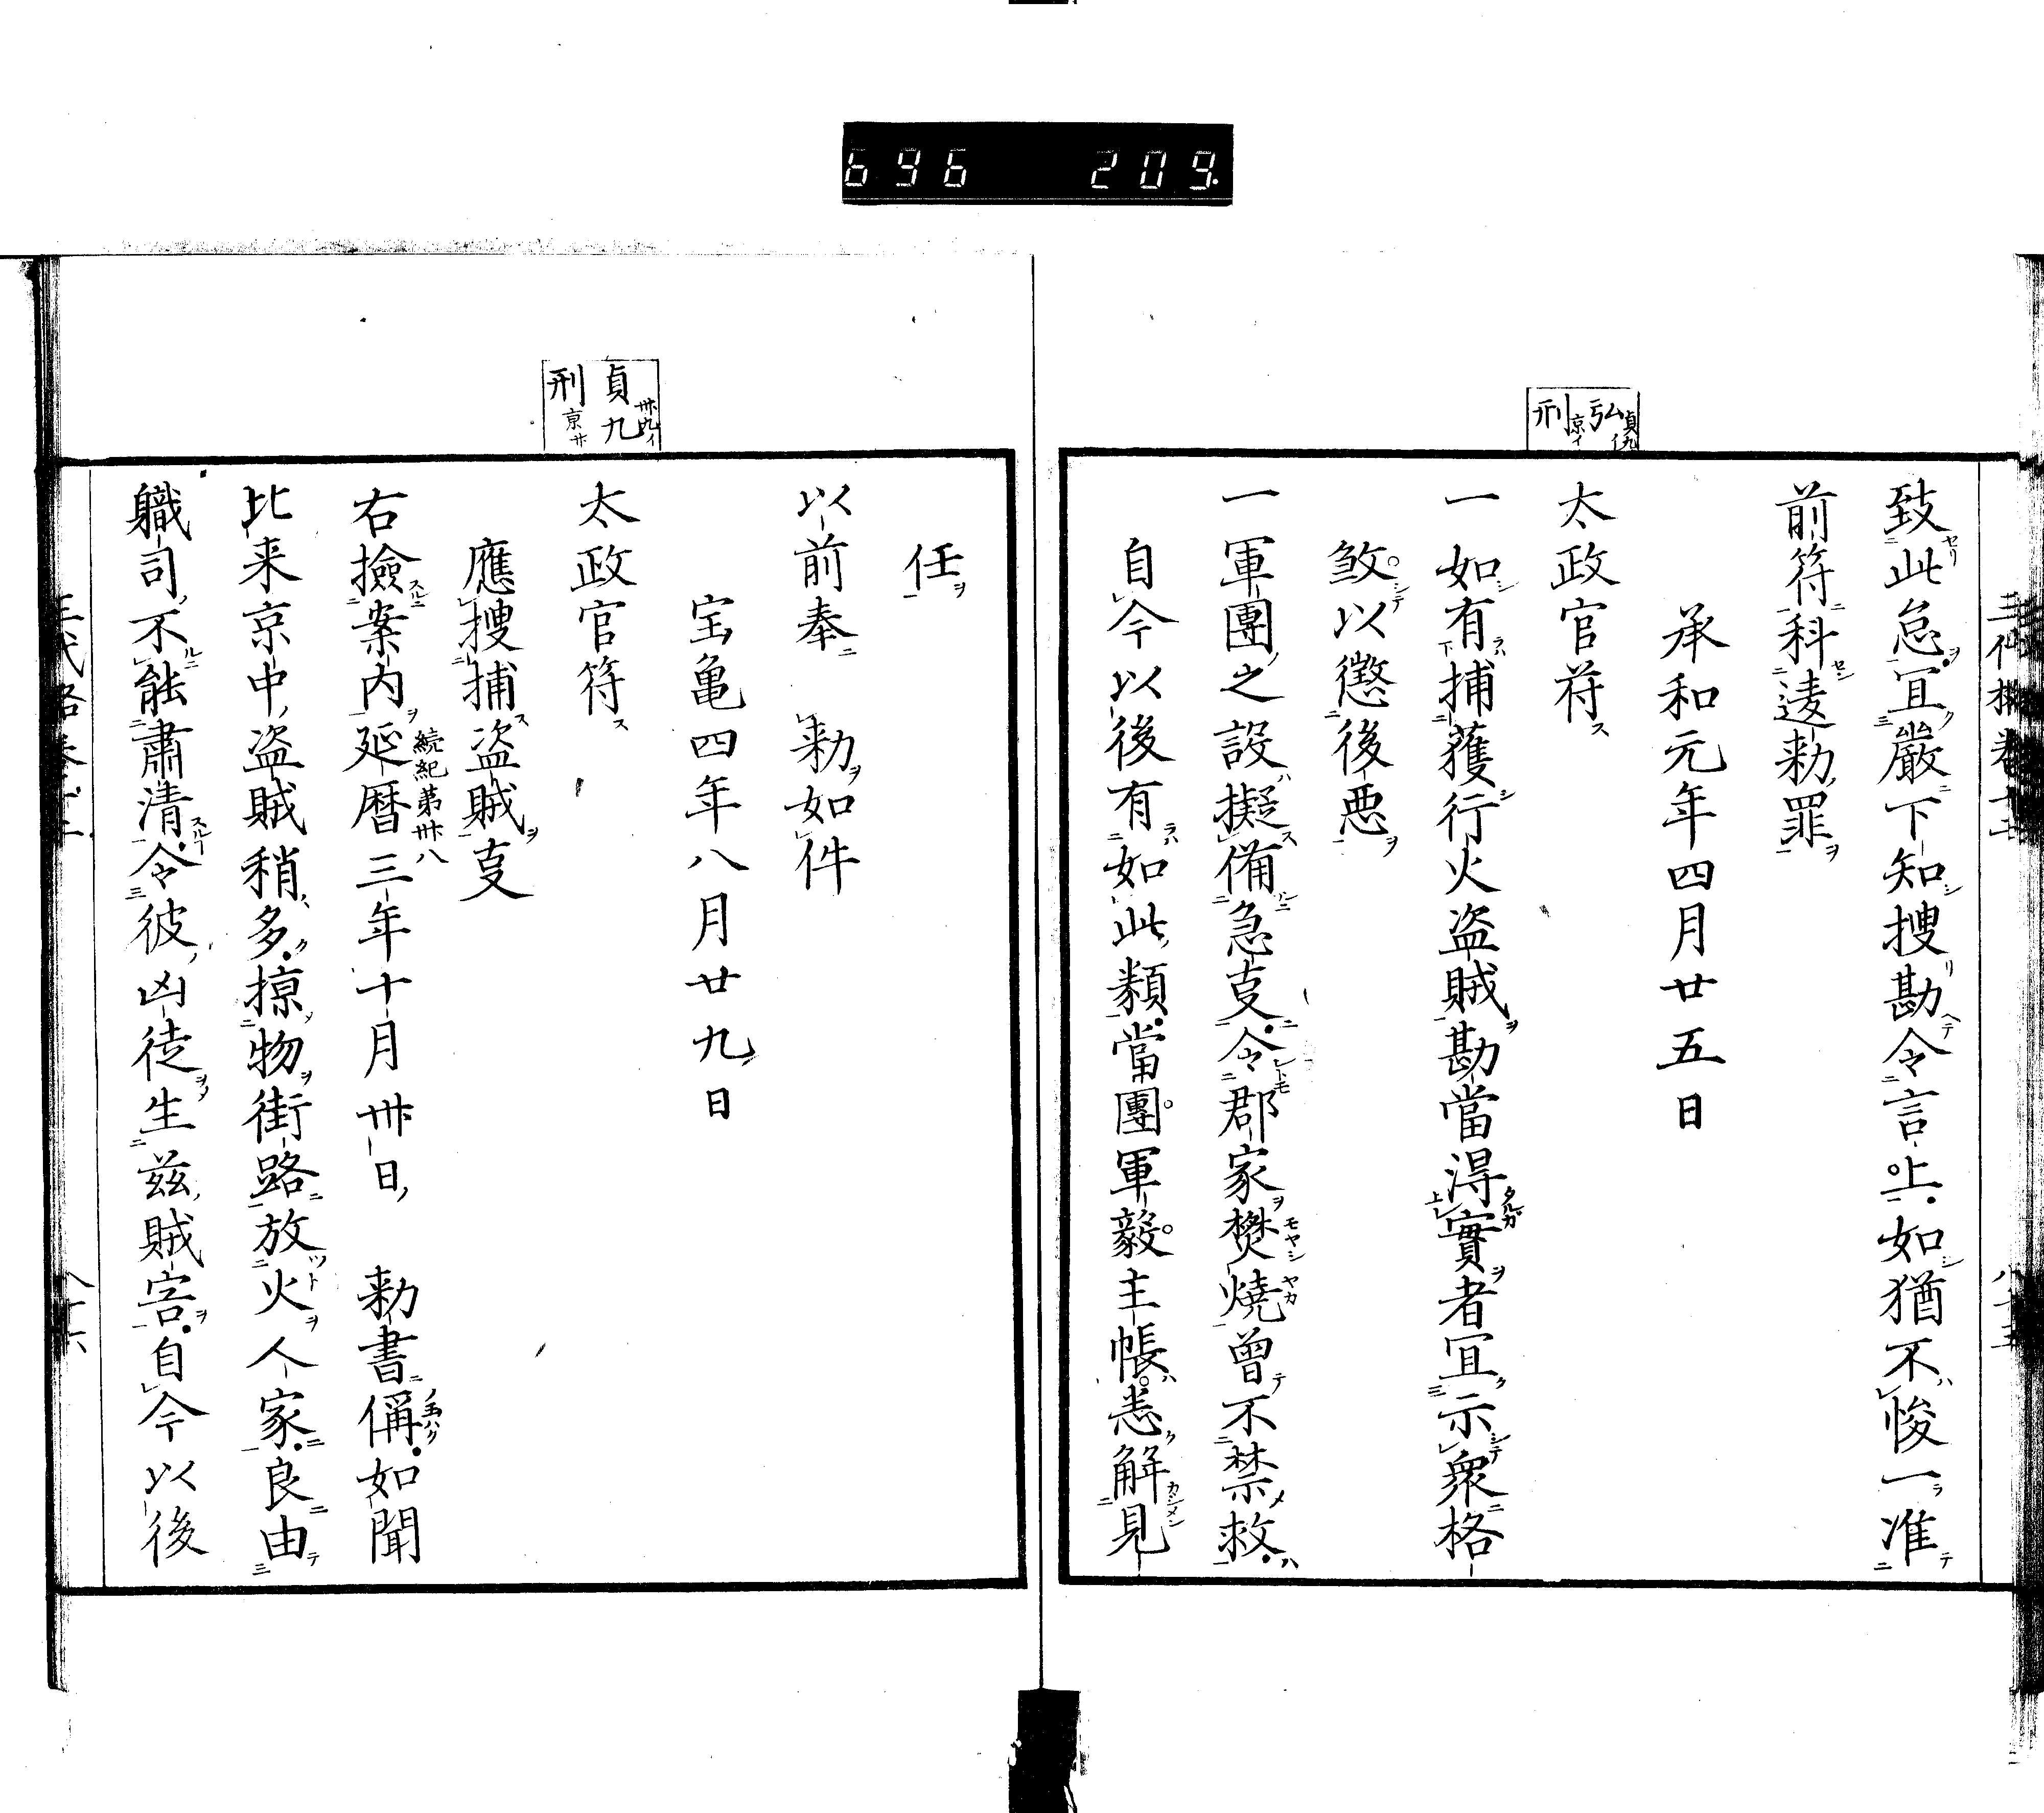 696 209
貞九イ
弘
京イ
刑
致此怠宜嚴下知搜勘令言上如猶不悛一准
前符科違勅罪
承和元年四月廿五日
太政官符
一如有捕獲行火盗賊勘當得實者宜示衆格
煞以懲後悪
一軍團之設擬備急㕝令郡家焚燒曽不禁救
自今以後有如此類當團軍毅主帳悉解見
卅九イ
貞九
刑
京廿
任
以前奉 勅如件
宝亀四年八月廿九日
太政官符
應搜捕盗賊㕝
続紀第卅八
右撿案内延暦三年十月卅日 勅書偁如聞
比来京中盗賊稍多掠物街路放火人家良由
軄司不能肅清令彼凶徒生兹賊害自今以後